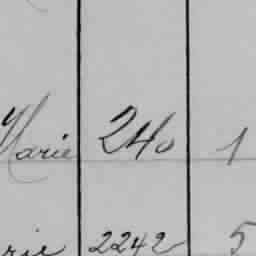 Marie 240 1
rie 2242 5